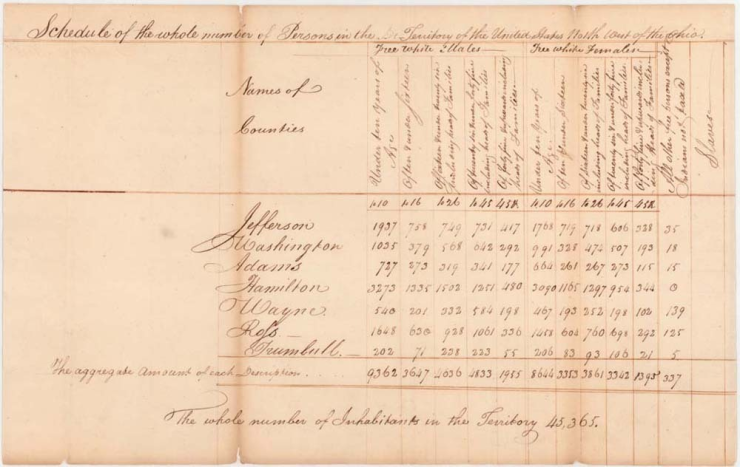 Schedule of the whole number of Persons in the Territory of the United States North West of the Ohio.
Free white Males Free white Females
Names of Counties
Under ten years of Age
Of ten & under sixteen
Of sixteen & under twenty six including heads of families
Of twenty six & under forty five including heads of families
Of forty five & upwards including heads of families
Under ten years of Age
Of ten & under sixteen
Of sixteen & under twenty six including heads of families
Of twenty six & under forty five including heads of families
Of forty five & upwards including heads of families
All other free persons except Indians not taxed
Slaves
to 10 to 16 to 26 to 45 45 & to 10 to 16 to 26 to 45 45 &
Jefferson 1937 758 749 731 417 1768 719 718 606 328 35
Washington 1035 379 568 642 292 991 328 474 507 193 18
Adams 727 273 319 341 177 664 261 267 273 115 15
Hamilton 3273 1335 1502 1251 480 3090 1165 1297 954 344 0
Wayne 540 201 332 584 198 467 193 252 198 102 139
Ross 1648 630 928 1061 336 1458 604 760 698 292 125
Trumbull 202 71 238 223 55 206 83 93 106 21 5
The aggregate amount of each Description 9362 3647 4636 4833 1955 8644 3353 3861 3342 1395 337
The whole number of Inhabitants in the Territory 45,365.